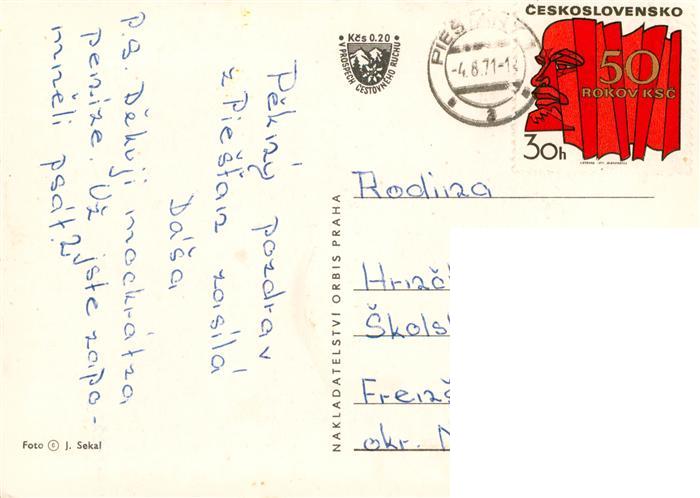 Pěkný pozdrav
z Piešťan zasílá
Dáša
P.S. Děkuji mockrátza
peníze. Už jste zapo-
mněli psát?
Foto © J. Sekal
NAKLADATELSTVÍ ORBIS PRAHA
Kčs 0.20
V PROSPĚCH CESTOVNÉHO RUCHU
PIEŠŤANY
-4.8.71-1
a
ČESKOSLOVENSKO
50
ROKOV KSČ
30h
Rodina
Školsk
okr.